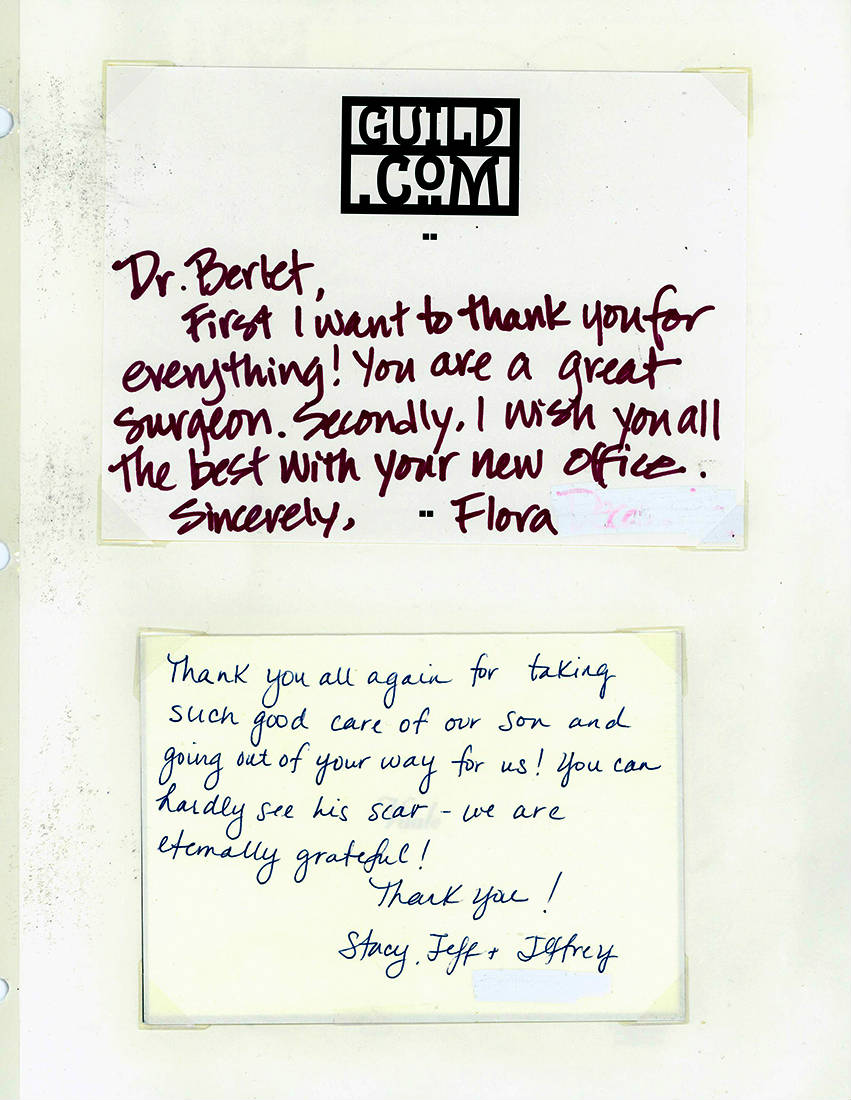 GUILD
.COM
Dr. Berlet,
First I want to thank you for
everything! You are a great
surgeon. Secondly, I wish you all
the best with your new office.
Sincerely, Flora
Thank you all again for taking
such good care of our son and
going out of your way for us! You can
hardly see his scar - we are
eternally grateful!
Thank you!
Stacy, Jeff + Jeffrey